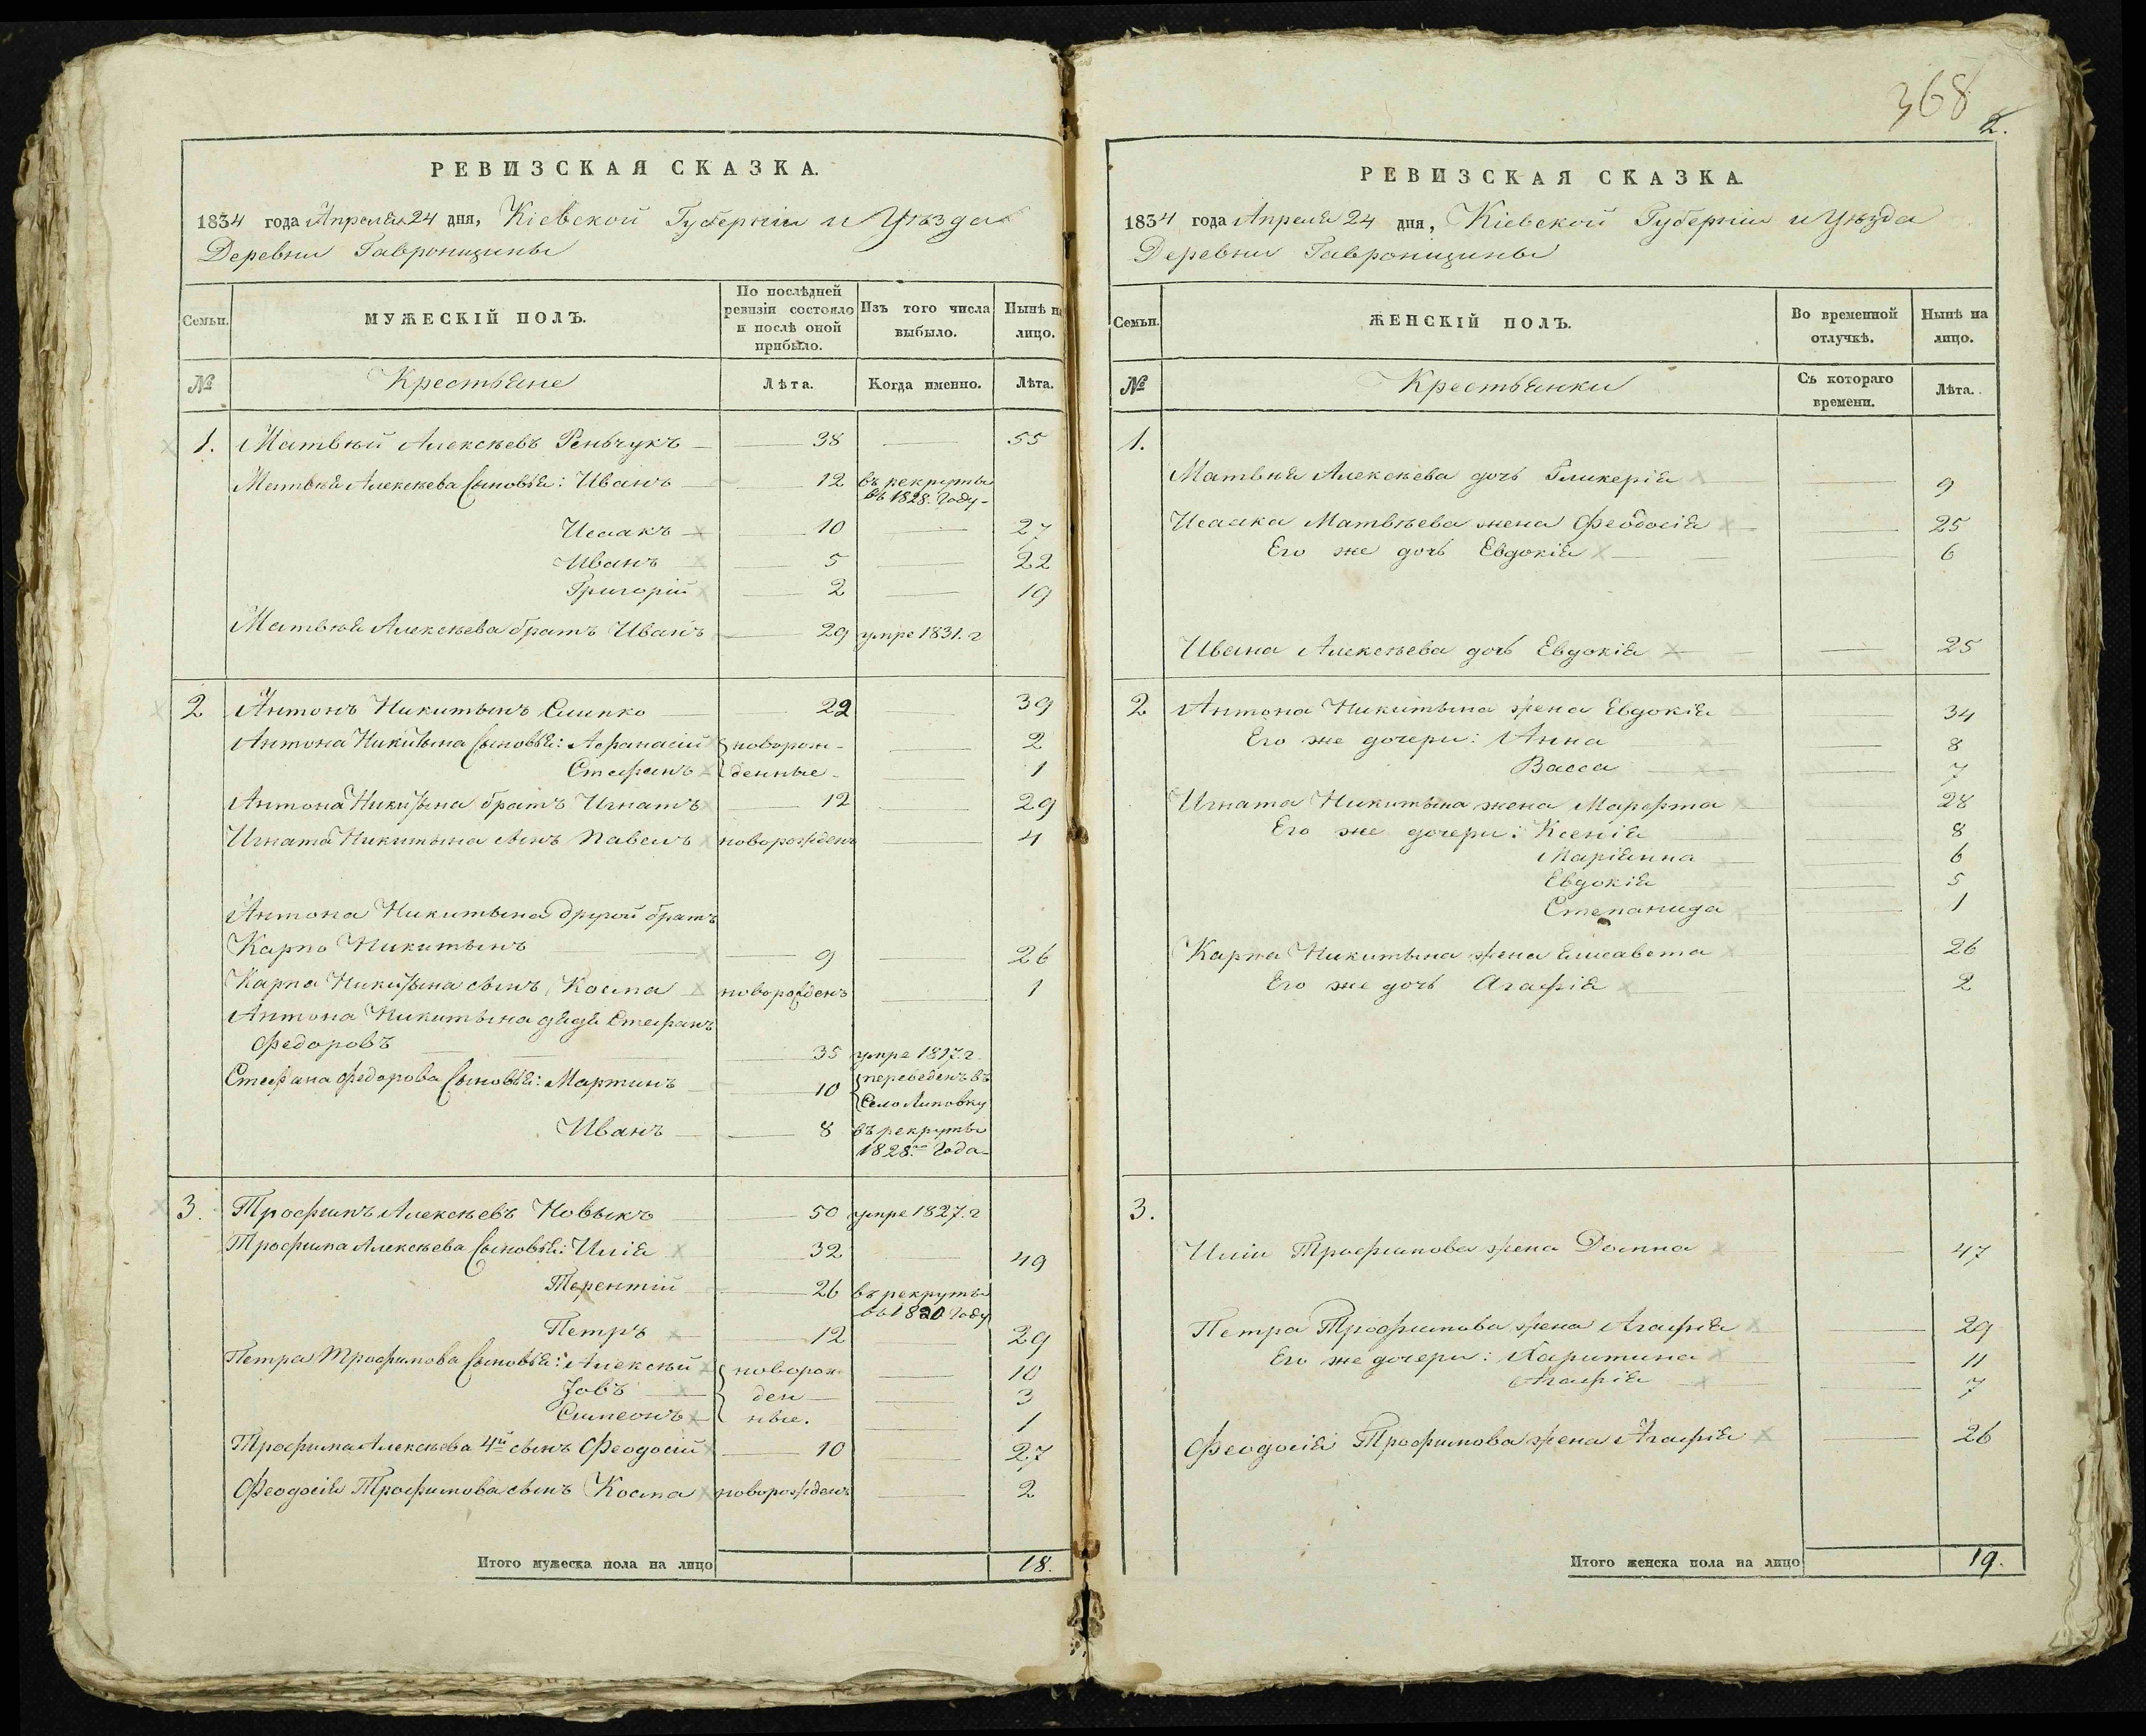 РЕВИЗСКАЯ СКАЗКА.
1834 года Апреля 24 дня, Кіевской Губерніи и Уѣзда
Деревни Гавронщины
Семьи.
МУЖЕСКІЙ ПОЛЪ.
По послѣдней ревизіи состояло и послѣ оной прибыло.
Изъ того числа выбыло.
Нынѣ на лицо.
№
Крестьяне
Лѣта.
Когда именно.
Лѣта.
1. Матвѣй Алексѣевъ Геньчукъ 38 55
Матвѣя Алексѣева сыновья: Иванъ 12 въ рекруты
въ 1828. Году
Исаакъ 10 27
Иванъ 5 22
Григорій 2 19
Матвѣя Алексѣева братъ Иванъ 29 умре 1831. г
2 Антонъ Никитынъ Слипко 22 39
Антона Никитына сыновья: Афанасій новорож- 2
Стефанъ денные 1
Антона Никитына братъ Игнатъ 12 29
Игната Никитына сынъ Павелъ новорожденъ 4
Антона Никитына другой братъ
Карпо Никитынъ 9 26
Карпа Никитына сынъ Косма новорожденъ 1
Антона Никитына дядя Стефанъ
Федоровъ 35 умре 1817. г.
Стефана Федорова сыновья: Мартинъ 10 переведенъ въ
Село Липовку
Иванъ 8 въ рекруты
1828.го Года
3. Трофимъ Алексѣевъ Новыкъ 50 умре 1827. г
Трофима Алексѣева сыновья: Илія 32 49
Терентій 26 въ рекруты
въ 1820 Году
Петръ 12 29
Петра Трофимова сыновья: Алексѣй новорож 10
Іовъ ден 3
Симеонъ ные. 1
Трофима Алексѣева 4й сынъ Феодосій 10 27
Феодосія Трофимова сынъ Косма новорожденъ 2
Итого мужеска пола на лицо 18.
368
2.
РЕВИЗСКАЯ СКАЗКА.
1834 года Апреля 24 дня, Кіевской Губерніи и Уѣзда
Деревни Гавронщины
Семьи.
ЖЕНСКІЙ ПОЛЪ.
Во временной отлучкѣ.
Нынѣ на лицо.
№
Крестьянки
Съ котораго времени.
Лѣта.
1.
Матвѣя Алексѣева дочь Гликерія 9
Исаака Матвѣева жена Феодосія 25
Его же дочь Евдокія 6
Ивана Алексѣева дочь Евдокія 25
2 Антона Никитына жена Евдокія 34
Его же дочери: Анна 8
Васса 7
Игната Никитына жена Марфта 28
Его же дочери: Ксенія 8
Маріянна 6
Евдокія 5
Степанида 1
Карпа Никитына жена Елисавета 26
Его же дочь Агафія 2
3.
Иліи Трофимова жена Домна 47
Петра Трофимова жена Агафія 29
Его же дочери: Харитина 11
Агафія 7
Феодосія Трофимова жена Агафія 26
Итого женска пола на лицо 19.